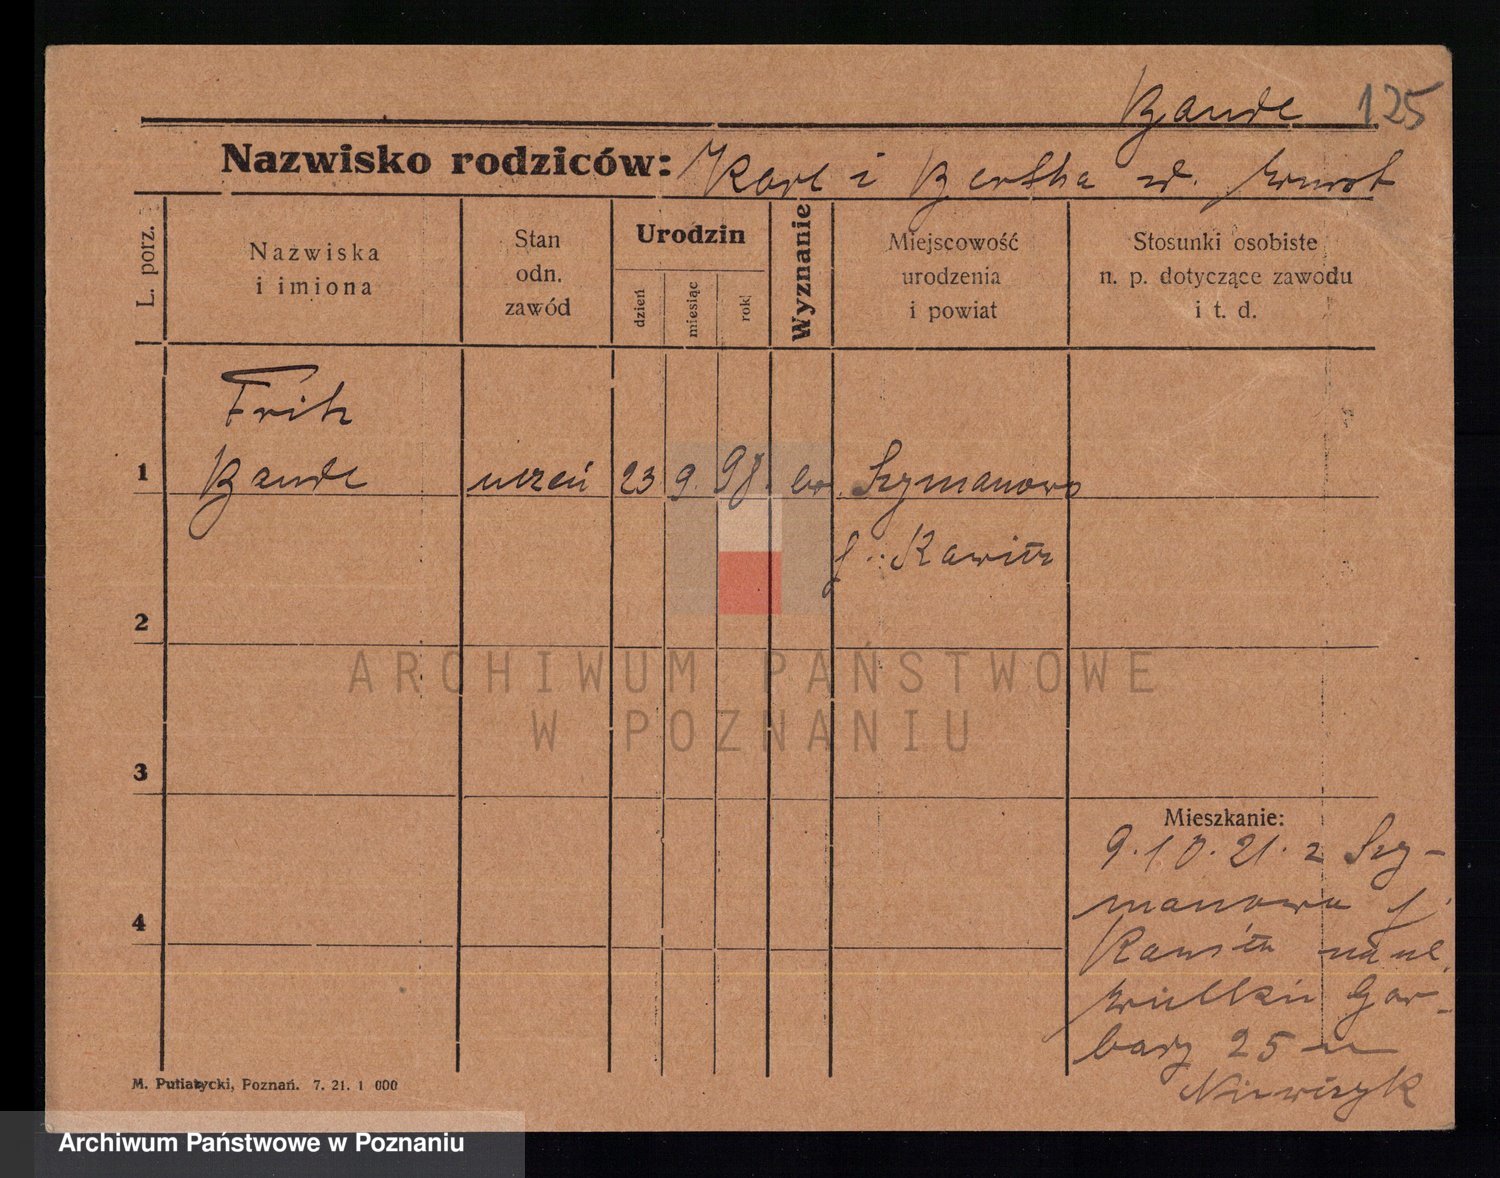 Bande 125
Nazwisko rodziców: Karl i Bertha
L. porz.
Nazwiska
i imiona
Stan
odn.
zawód
Urodzin
dzień
miesiąc
rok
Wyznanie
Miejscowość
urodzenia
i powiat
Stosunki osobiste
n. p. dotyczące zawodu
i t. d.
Fritz
1 Bande uczeń 23 9. 98. ew. Szymanowo
Rawitz
2
3
4
ARCHIWUM PAŃSTWOWE
W POZNANIU
Mieszkanie:
9.10.21. z Szy-
manowa
Rawitz na ul.
Wielkie Gar-
bary 25 u
M. Putiatycki, Poznań. 7. 21. 1 000
Archiwum Państwowe w Poznaniu